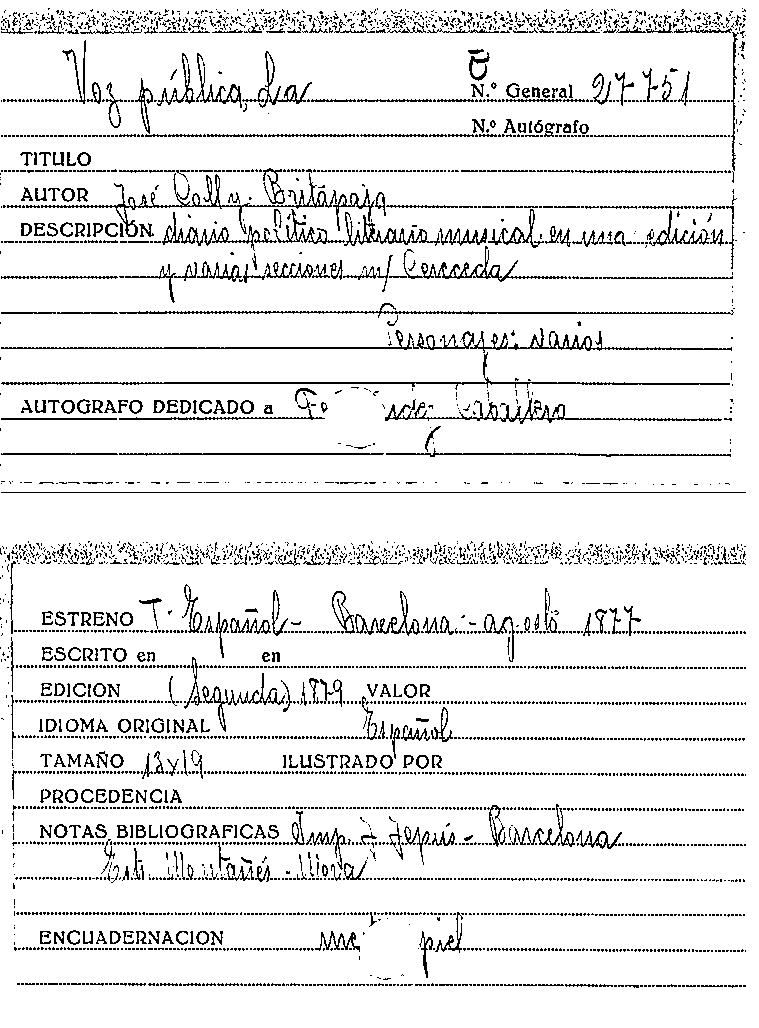 Voz pública, La
N.º General 27751
N.º Autógrafo
TITULO
AUTOR José Coll y Britapaja
DESCRIPCIÓN diario político literario musical en una edición
y varias secciones m/ Cereceda
Personajes: varios
AUTOGRAFO DEDICADO a Caballero
ESTRENO T. Español - Barcelona - agosto 1877
ESCRITO en en
EDICION (Segunda) 1879 VALOR
IDIOMA ORIGINAL Español
TAMAÑO 13x19 ILUSTRADO POR
PROCEDENCIA
NOTAS BIBLIOGRAFICAS Imp. J. Jepús - Barcelona
Montañés -
ENCUADERNACION piel